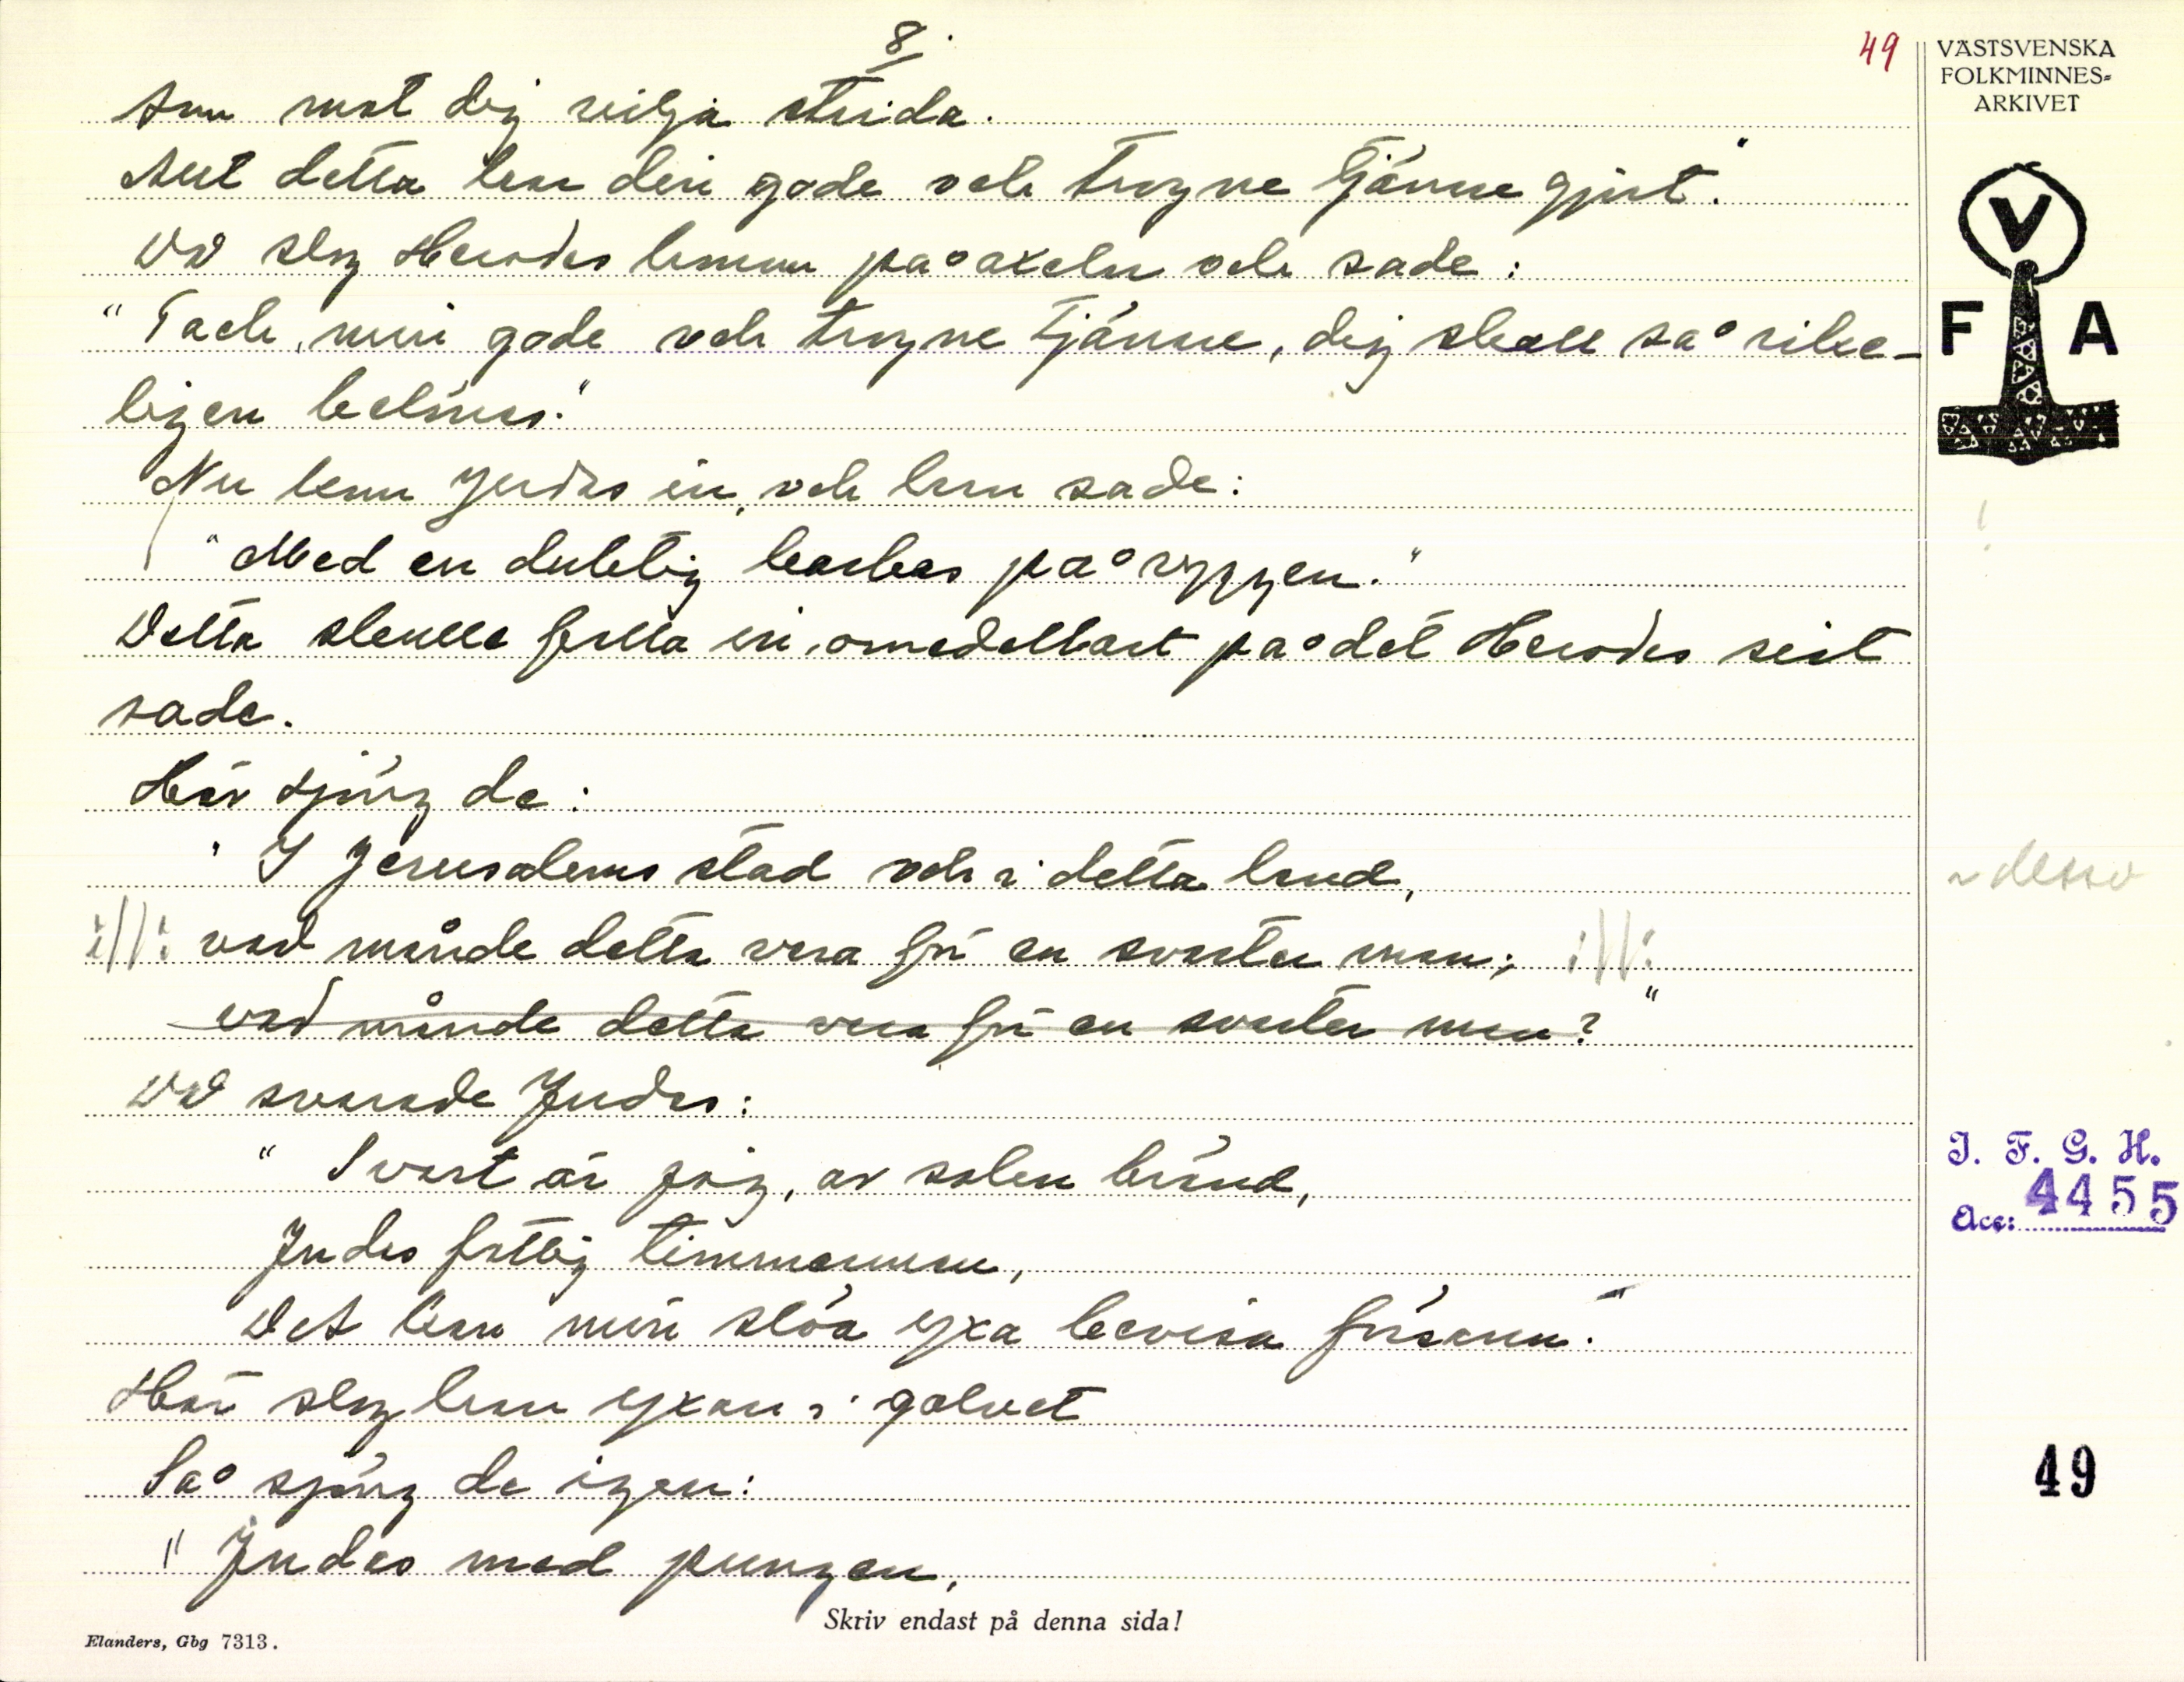 8.
49
VÄSTSVENSKA
FOLKMINNES-
ARKIVET
V
F A
som mot dig vilja strida.
Allt detta har din gode och trogne tjänare gjort."
Då slog Herodes honom på axeln och sade:
"Tack, min gode och trogne tjänare, dig skall så rike-
ligen belönas."
Nu kom Judas in, och han sade:
"Med en duktig karbas på ryggen."
Detta skulle falla in omedelbart på det Herodes sist
sade.
Här sjöng de:
"I Jerusalems stad och i detta land,
:||: vad månde detta vara för en svarter man; :||:
vad månde detta vara för en svarter man?"
Då svarade Judas:
"Svart är jag, av solen bränd,
Judas fattig timmerman,
Det kan min slöa yxa bevisa försann."
Här slog han yxan i golvet
Så sjöng de igen:
"Judas med pungen,
~ desso
I. F. G. H.
Acc: 4455
49
Skriv endast på denna sida!
Elanders, Gbg 7313.